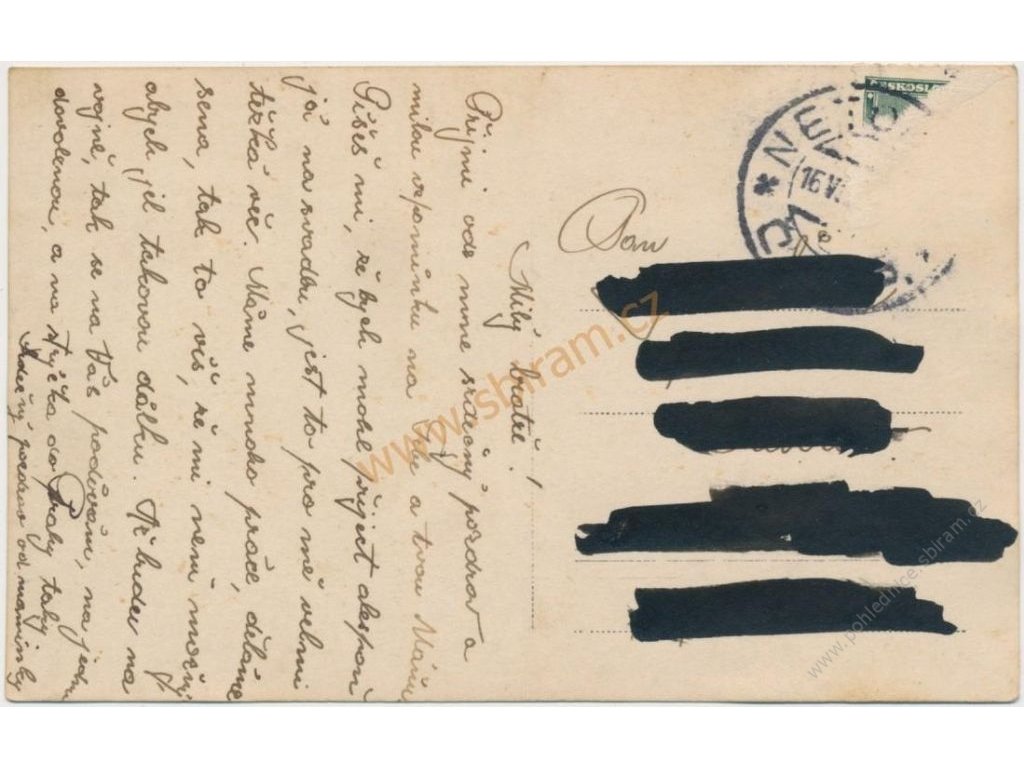 Milý bratře!
Přijmi ode mne srdečný pozdrav a
milou vzpomínku na Tebe a tvou Máňu
Píšeš mi, že bych mohl přijet alespoň
já na svadbu, jest to pro mě velmi
težká věc. Máme mnoho práce, děláme
sena, tak to víš, že mi není možný
abych jel takovou dálku. Až budu na
vojně, tak se na Vás podívám, na jednu
dovolenou, a na strýčka do Prahy taky
Srdečný pozdrav od maminky
Pan
ČESKOSLO
* NE
16 VI
www.sbiram.cz
www.pohlednice.sbiram.cz